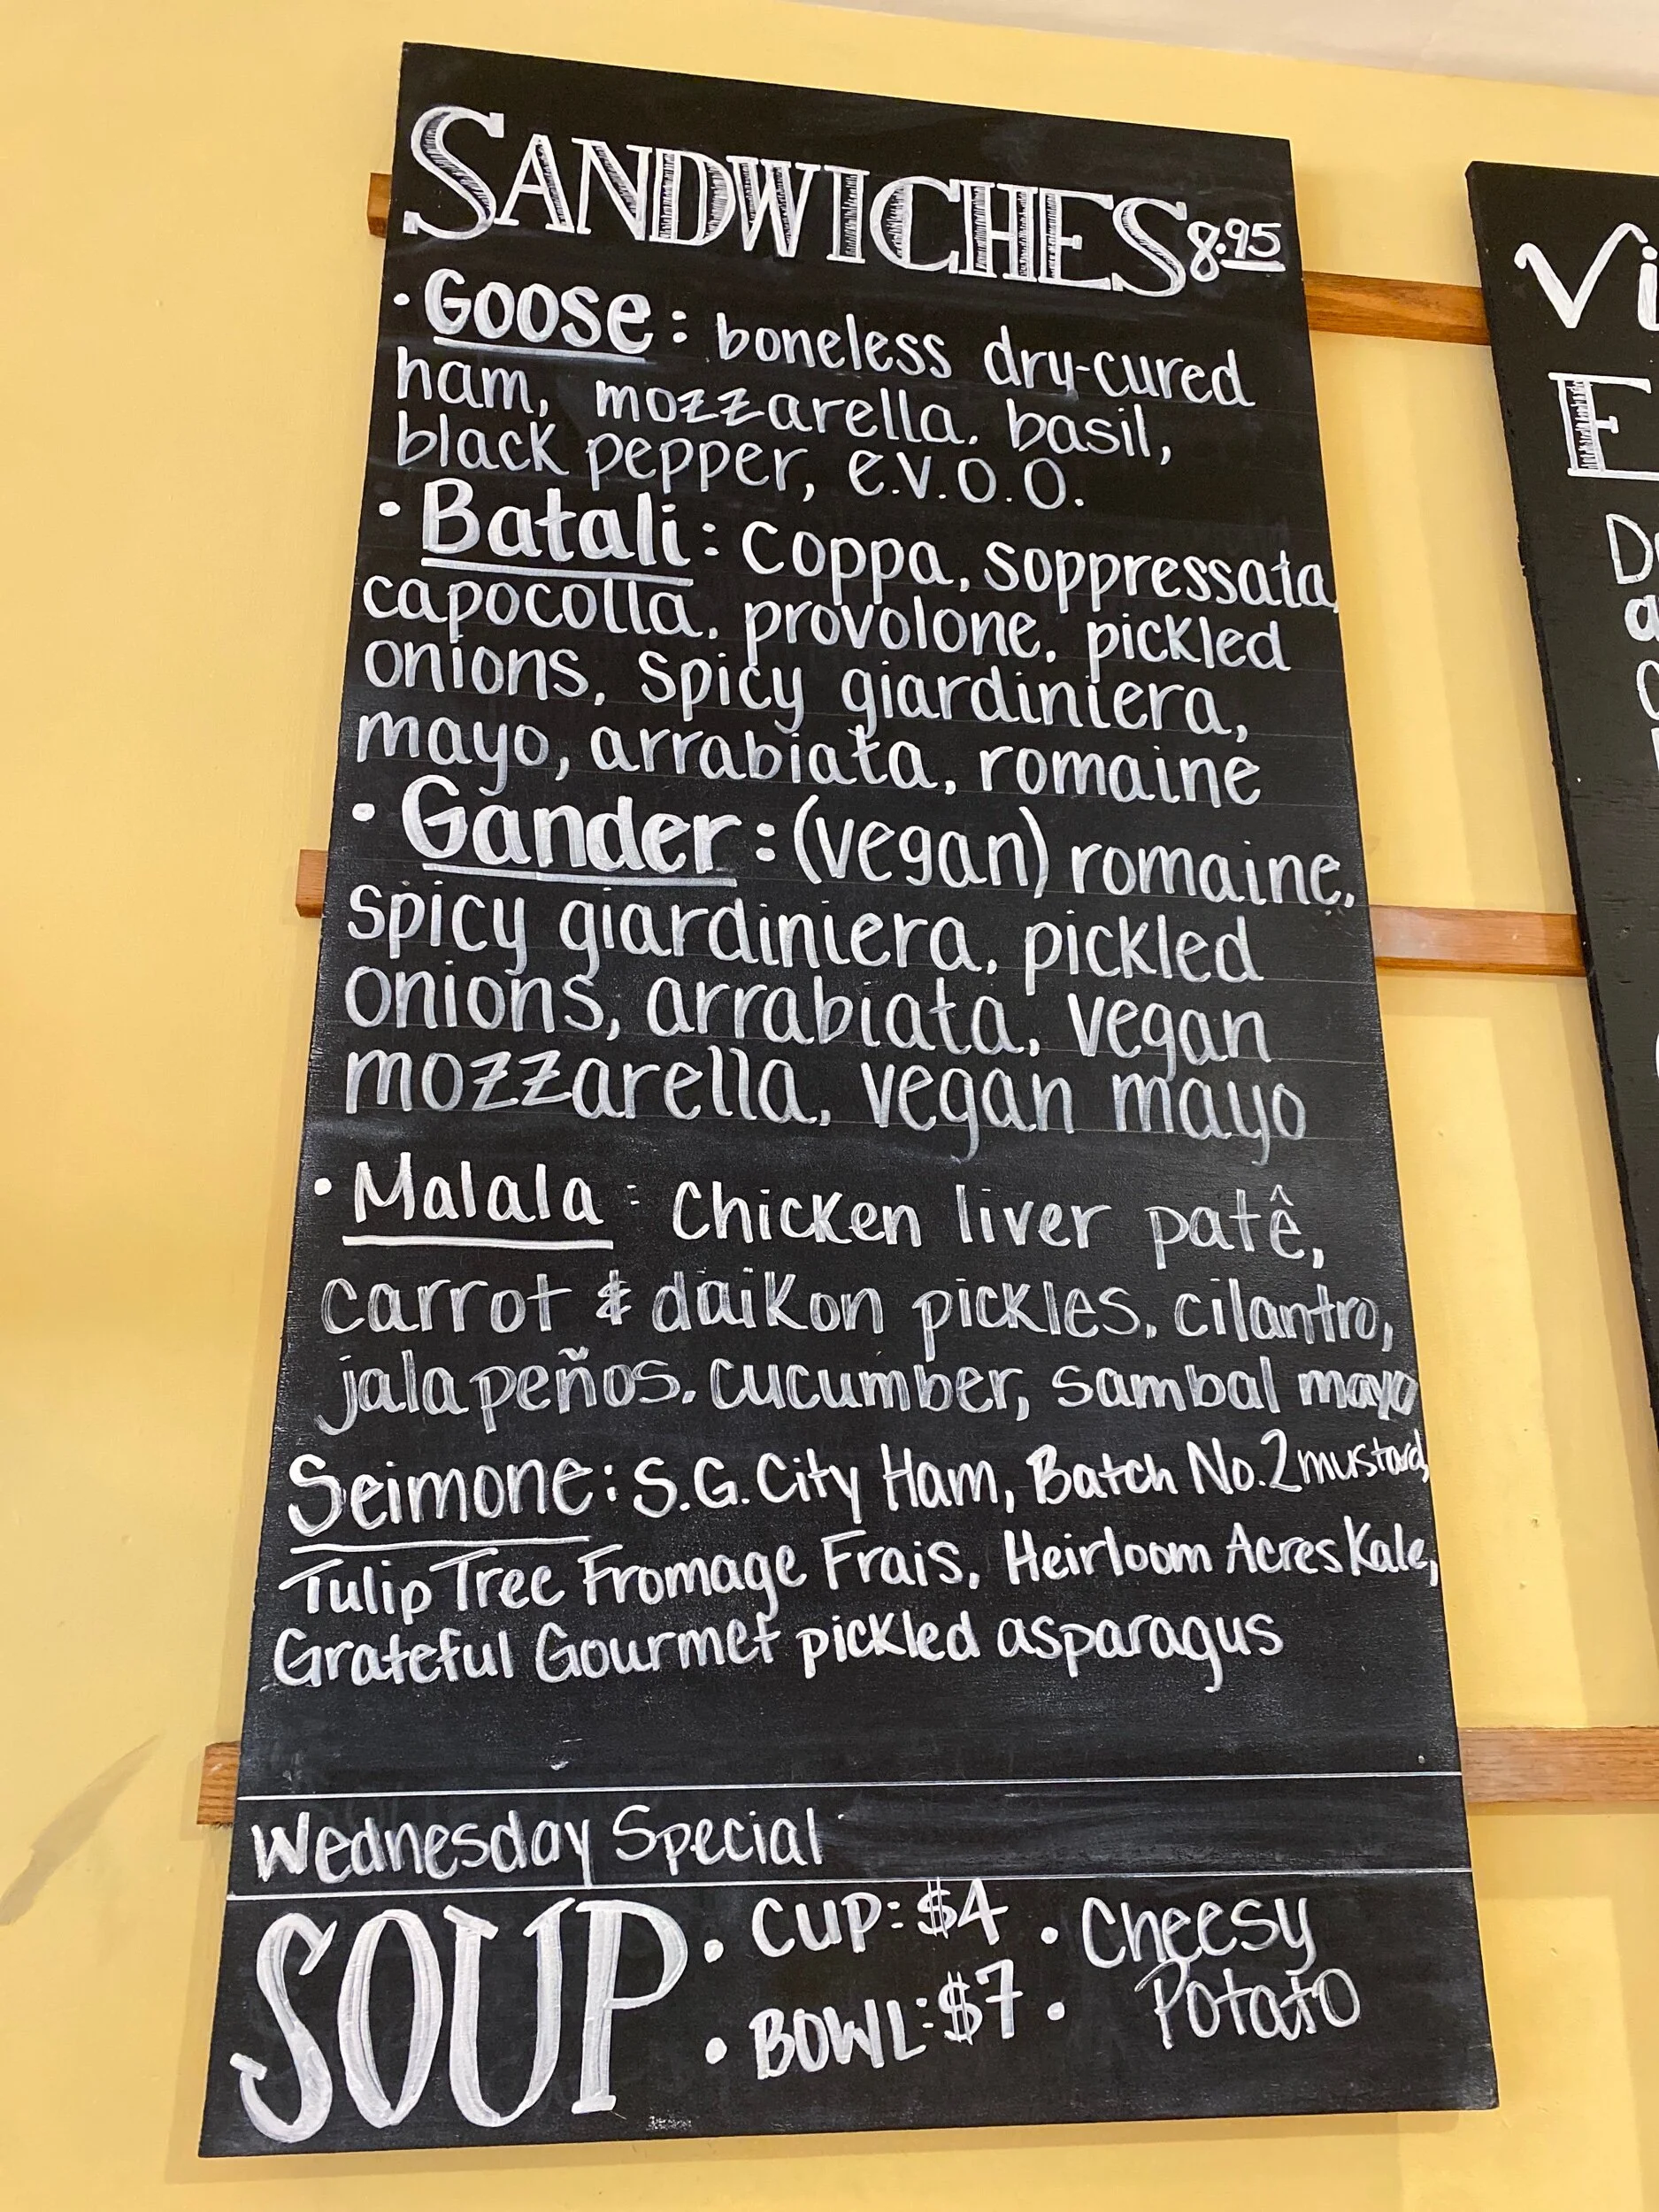 SANDWICHES 8.95
• Goose: boneless dry-cured
ham, mozzarella, basil,
black pepper, e.v.o.o.
• Batali: Coppa, soppressata,
capocolla, provolone, pickled
onions, spicy giardiniera,
mayo, arrabiata, romaine
• Gander: (vegan) romaine,
spicy giardiniera, pickled
onions, arrabiata, vegan
mozzarella, vegan mayo
• Malala: Chicken liver patê,
carrot & daikon pickles, cilantro,
jalapeños, cucumber, sambal mayo
Seimone: S.G. City Ham, Batch No. 2 mustard,
Tulip Tree Fromage Frais, Heirloom Acres Kale,
Grateful Gourmet pickled asparagus
Wednesday Special
SOUP
• CUP: $4
• BOWL: $7
• Cheesy
• Potato
Vi
E